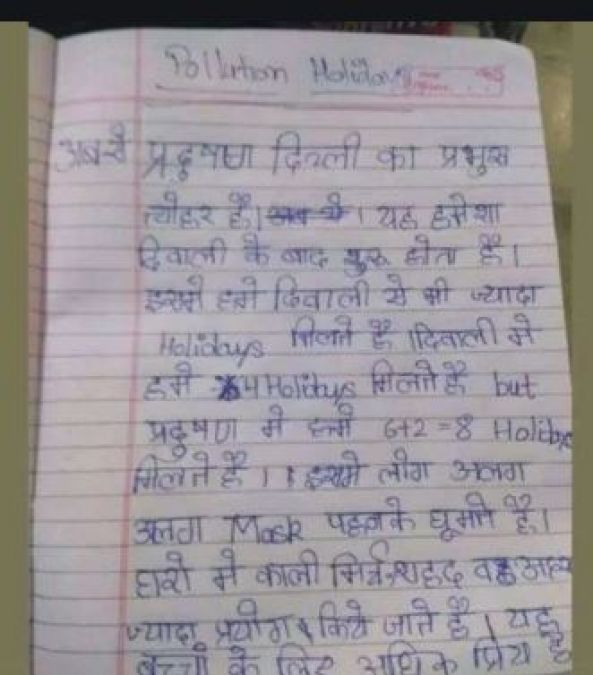 Pollution Holidays
अबसे प्रदुषण दिल्ली का प्रमुख
त्योहर है। यह हमेशा
दिवाली के बाद शुरू होता है।
इसमे हमे दिवाली से भी ज्यादा
Holidays मिलते है। दिवाली मे
हमे 4 Holidays मिलते है but
प्रदुषण मे हमे 6+2=8 Holidays
मिलते है। इसमे लोग अलग
अलग Mask पहनके घूमते है।
घरो मे काली मिर्च, शहद व
ज्यादा प्रयोग किये जाते है। यह
बच्चो के लिए अधिक प्रिय है